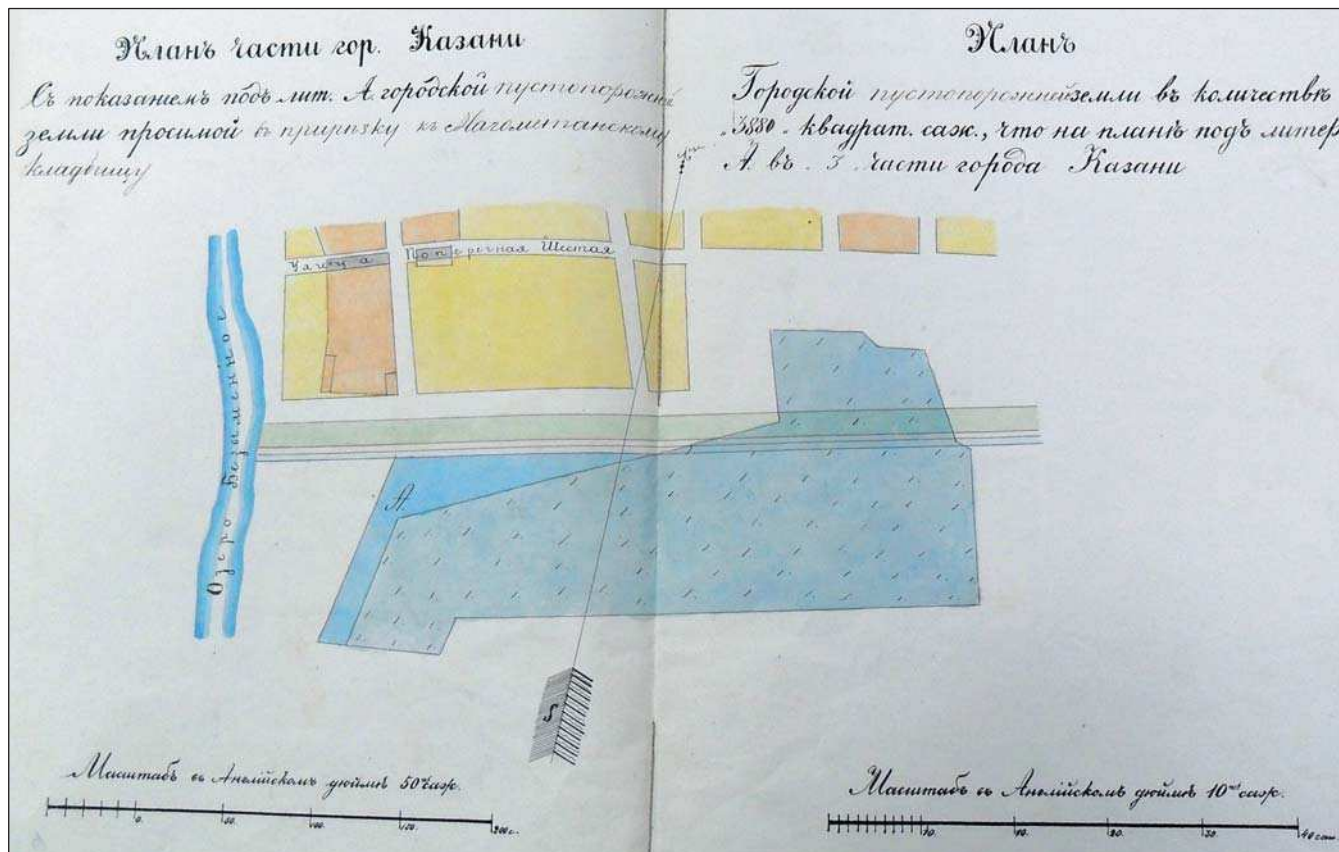 Планъ части гор. Казани
Съ показаніемъ подъ лит. А. городской пустопорожней
земли просимой въ прирѣзку къ Магометанскому
кладбищу
Планъ
Городской пустопорожней земли въ количествѣ
„3880„ квадрат. саж., что на планѣ подъ литер.
А. въ . 3 . части города Казани
Улица Поперечная Шестая
Озеро Безыменное
А.
S
Масштабъ въ Англійскомъ дюймѣ 50 саж.
0. 50. 100. 150. 200 с.
Масштабъ въ Англійскомъ дюймѣ 10 саж.
10. 10. 20. 30. 40 саж